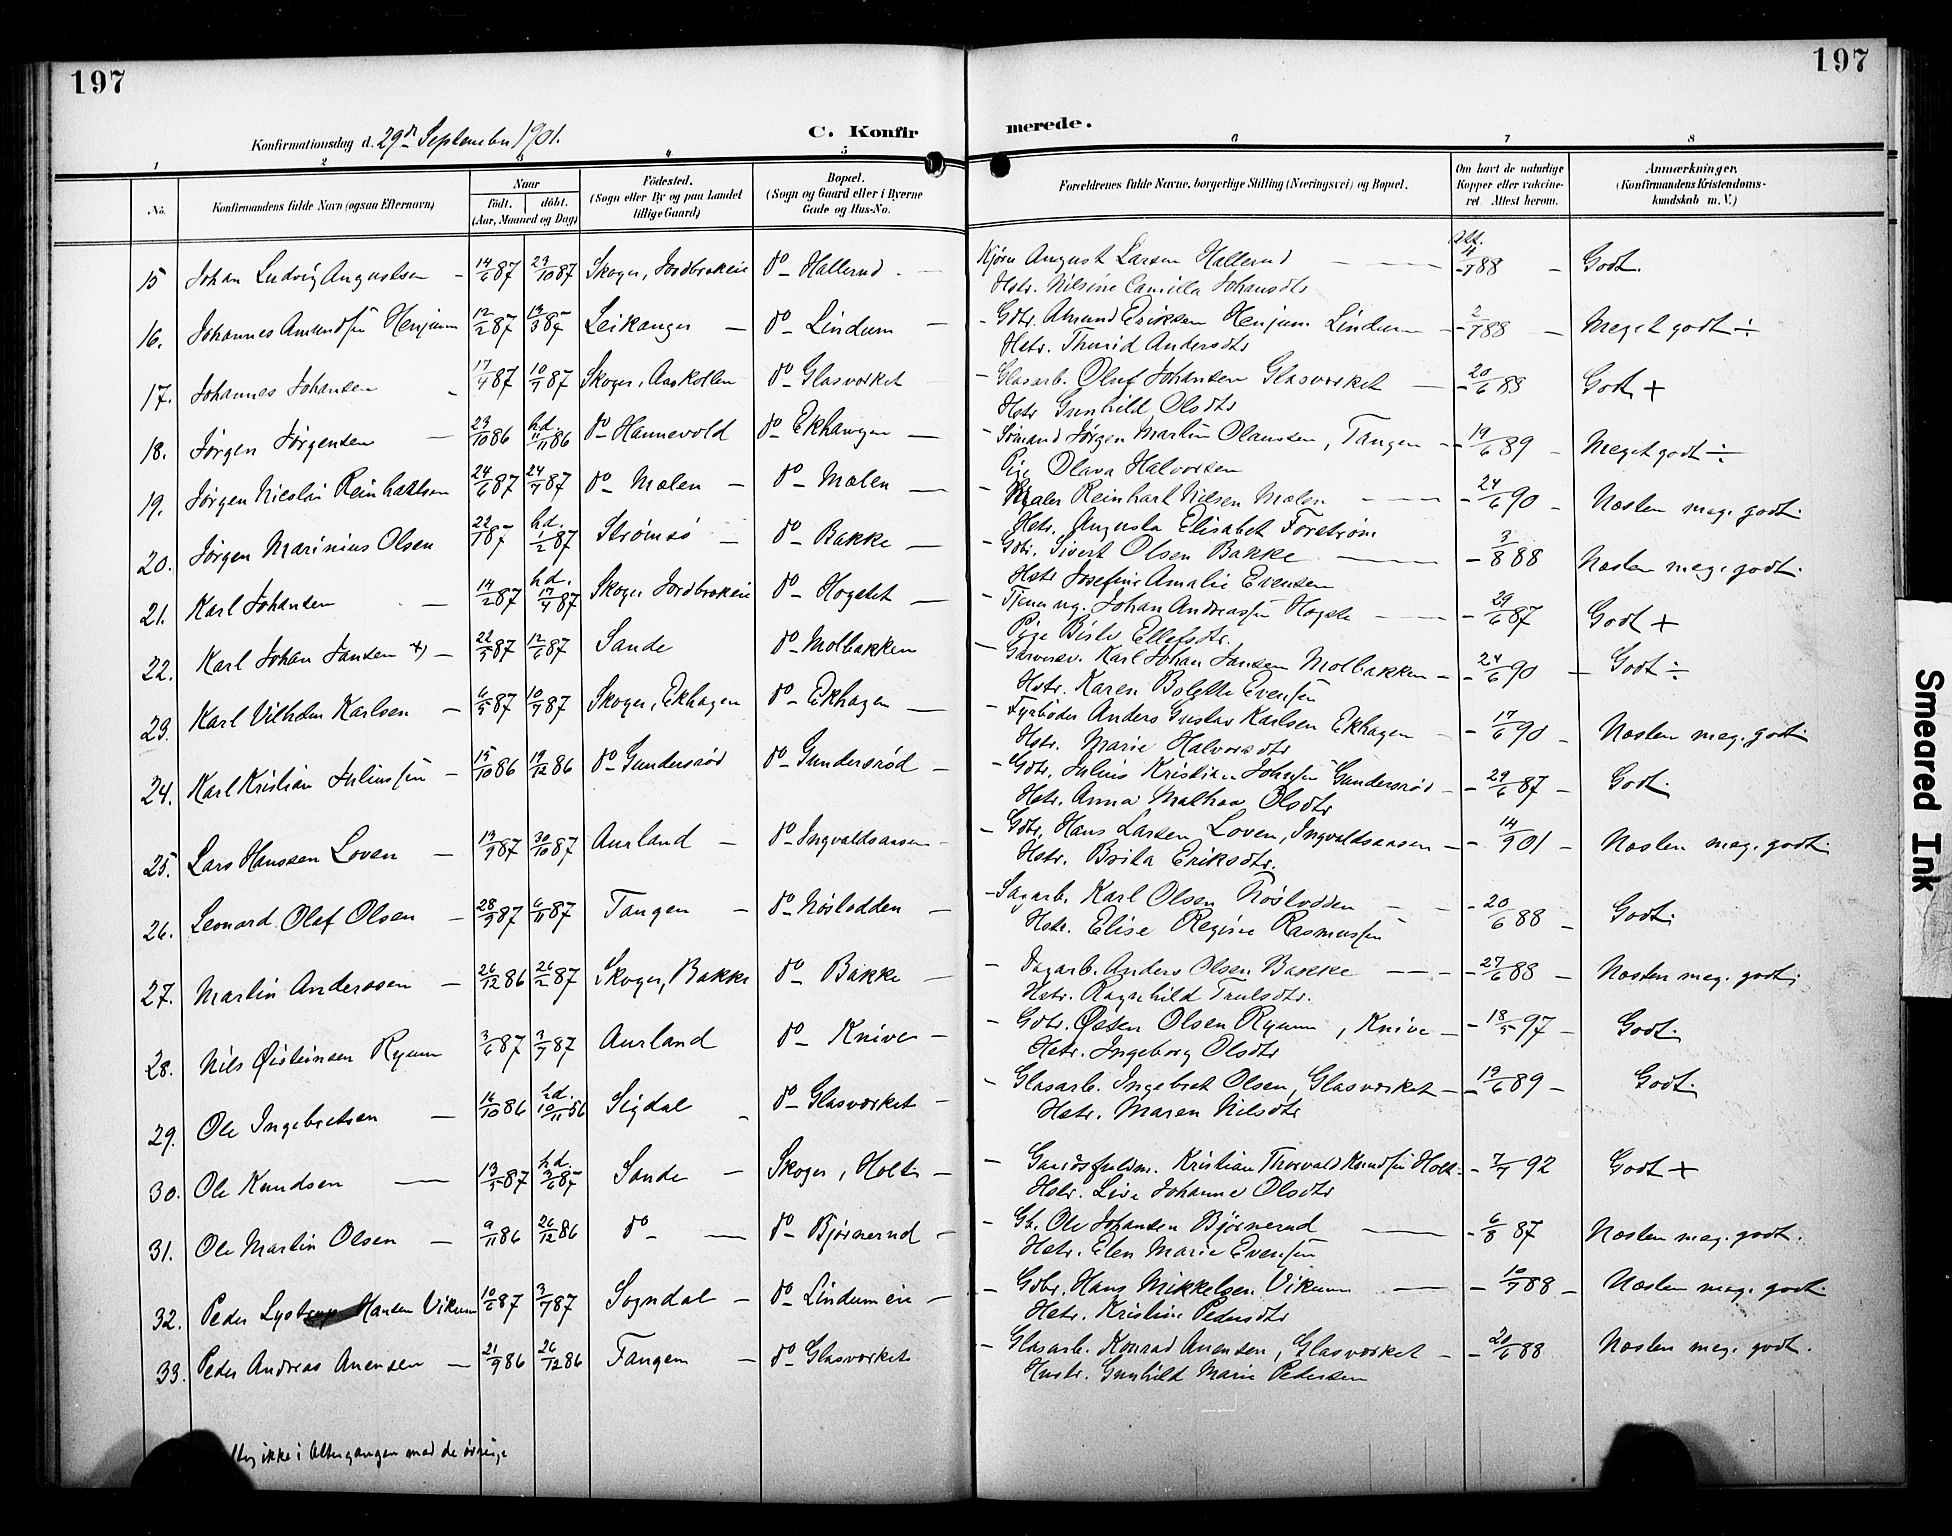 197
197
Konfirmationsdag d. 29de September 1901.
C. Konfir
merede.
1 2 3 4 5 6 7 8
No.
Konfirmandens fulde Navn (ogsaa Efternavn)
Naar
født. døbt.
(Aar, Maaned og Dag)
Fødested.
(Sogn eller By og paa Landet
tillige Gaard)
Bopæl.
(Sogn og Gaard eller i Byerne
Gade og Hus-No.
Forældrenes fulde Navne, borgerlige Stilling (Næringsvei) og Bopæl.
Om havt de naturlige
Kopper eller vakcine-
ret. Attest herom.
Anmærkninger.
(Konfirmandens Kristendoms-
kundskab m. V.)
15 Johan Ludvig Augustsen – 14/6 87 23/10 87 Skoger, Jordbrekeie do – Hallerud – Kjörer August Larsen Hallerud – Att. 4/7 88 – Godt.
Hstr. Nilsine Camilla Johansdtr
16. Johannes Amundsen Henjum 12/2 87 13/3 87 Leikanger – do – Lindum – Gdbr. Amund Eriksen Henjum Lindum – 2/7 88 – Meget godt ÷
Hstr. Thurid Andersdtr
17. Johannes Johansen 17/4 87 10/7 87 Skoger, Aaskollen do – Glasværket – Glasarb. Oluf Johansen Glasværket – 20/6 88 Godt +
Hstr Gunhild Olsdtr
18. Jørgen Jørgensen – 23/10 86 hd. 11/11 86 do – Hannevold do – Ekhaugen – Sömand Jörgen Martin Olaussen, Tangen – 19/6 89 – Meget godt ÷
Pige Olava Halvorsen
19. Jørgen Nicolai Reinhartsen 24/6 87 24/7 87 do – Mælen – do – Mælen – Maler Reinhart Nilsen Mælen – 24/6 90 – Næsten meg. godt.
Hstr. Augusta Elisabet Forström
20. Jørgen Marinius Olsen 22/1 87 hd. 1/2 87 Strømsö – do – Bakke – Gdbr. Sivert Olsen Bakke – 3/8 88 Næsten meg. godt.
Hstr Josefine Amalie Evensen
21. Karl Johansen – 14/2 87 hd. 17/4 87 Skoger Jordbrekeie do – Hogstet – Tjener ug. Johan Andreassen Hogstet – 29/6 87 Godt +
Pige Birte Ellefsdtr.
22. Karl Johan Jansen *) – 22/5 87 12/6 87 Sande do – Molbakken – Garversv. Karl Johan Jansen Molbakken – 24/6 90 – Godt ÷
Hstr. Karen Bolette Evensen
23. Karl Vilhelm Karlsen – 6/5 87 10/7 87 Skoger, Ekhagen do – Ekhagen – Fyrböder Anders Gustav Karlsen Ekhagen – 17/6 90 – Næsten meg. godt.
Hstr. Marie Halvorsdtr
24. Karl Kristian Juliussen – 15/10 86 19/12 86 do Gundersrød do – Gundersrød – Gdbr. Julius Kristian Johnsen Gundersröd – 29/6 87 – Godt.
Hstr. Anna Mathea Olsdtr
25. Lars Hanssen Loven – 19/9 87 30/10 87 Aurland – do – Ingvaldsaasen – Gdbr. Hans Larsen Loven, Ingvaldsaasen – 14/9 01 – Næsten meg. godt.
Hstr. Brita Eriksdtr.
26. Leonard Olaf Olsen – 28/9 87 6/11 87 Tangen – do – Nøstodden – Sagarb. Karl Olsen Nöstodden – 20/6 88 – Godt.
Hstr. Elise Regine Rasmussen
27. Martin Anderssen – 26/12 86 26/2 87 Skoger, Bakke do – Bakke – Dagarb. Anders Olsen Bakke – 27/6 88 – Næsten meg. godt.
Hstr. Ragnhild Trulsdtr.
28. Nils Øisteinsen Ryum 3/6 87 3/7 87 Aurland do – Knive – Gdbr. Østen Olsen Ryum, Knive – 18/5 97 – Godt.
Hstr. Ingeborg Olsdtr
29. Ole Ingebretsen – 16/10 86 hd. 10/11 86 Sigdal – do – Glasværket – Glasarb. Ingebret Olsen, Glasværket – 19/6 89 – Godt.
Hstr. Maren Nilsdtr
30. Ole Knudsen – 13/5 87 hd. 3/6 87 Sande – Skoger, Holte – Gaardsfuldm. Kristian Thorvald Knudsen Holt – 7/7 92 Godt +
Hstr. Live Johanne Olsdtr
31. Ole Martin Olsen – 9/11 86 26/12 86 do – – do – Bjørnerud – Gb. Ole Johansen Bjørnerud – 6/8 87 Næsten meg. godt.
Hstr. Elen Marie Evensen
32. Peder Lystrup Hansen Vikum 10/6 87 3/7 87 Sogndal – do – Lindumeie – Gdbr. Hans Mikkelsen Vikum – 10/7 88 – Næsten meg. godt.
Hstr. Kristine Pedersdtr
33. Peder Andreas Anensen – 21/9 86 26/12 86 Tangen – do – Glasværket – Glasarb. Konrad Anensen, Glasværket – 20/6 88 Næsten meg. godt.
Hustr. Gunhild Marie Pedersen
ikke i Altergangen med de övrige
Smeared Ink